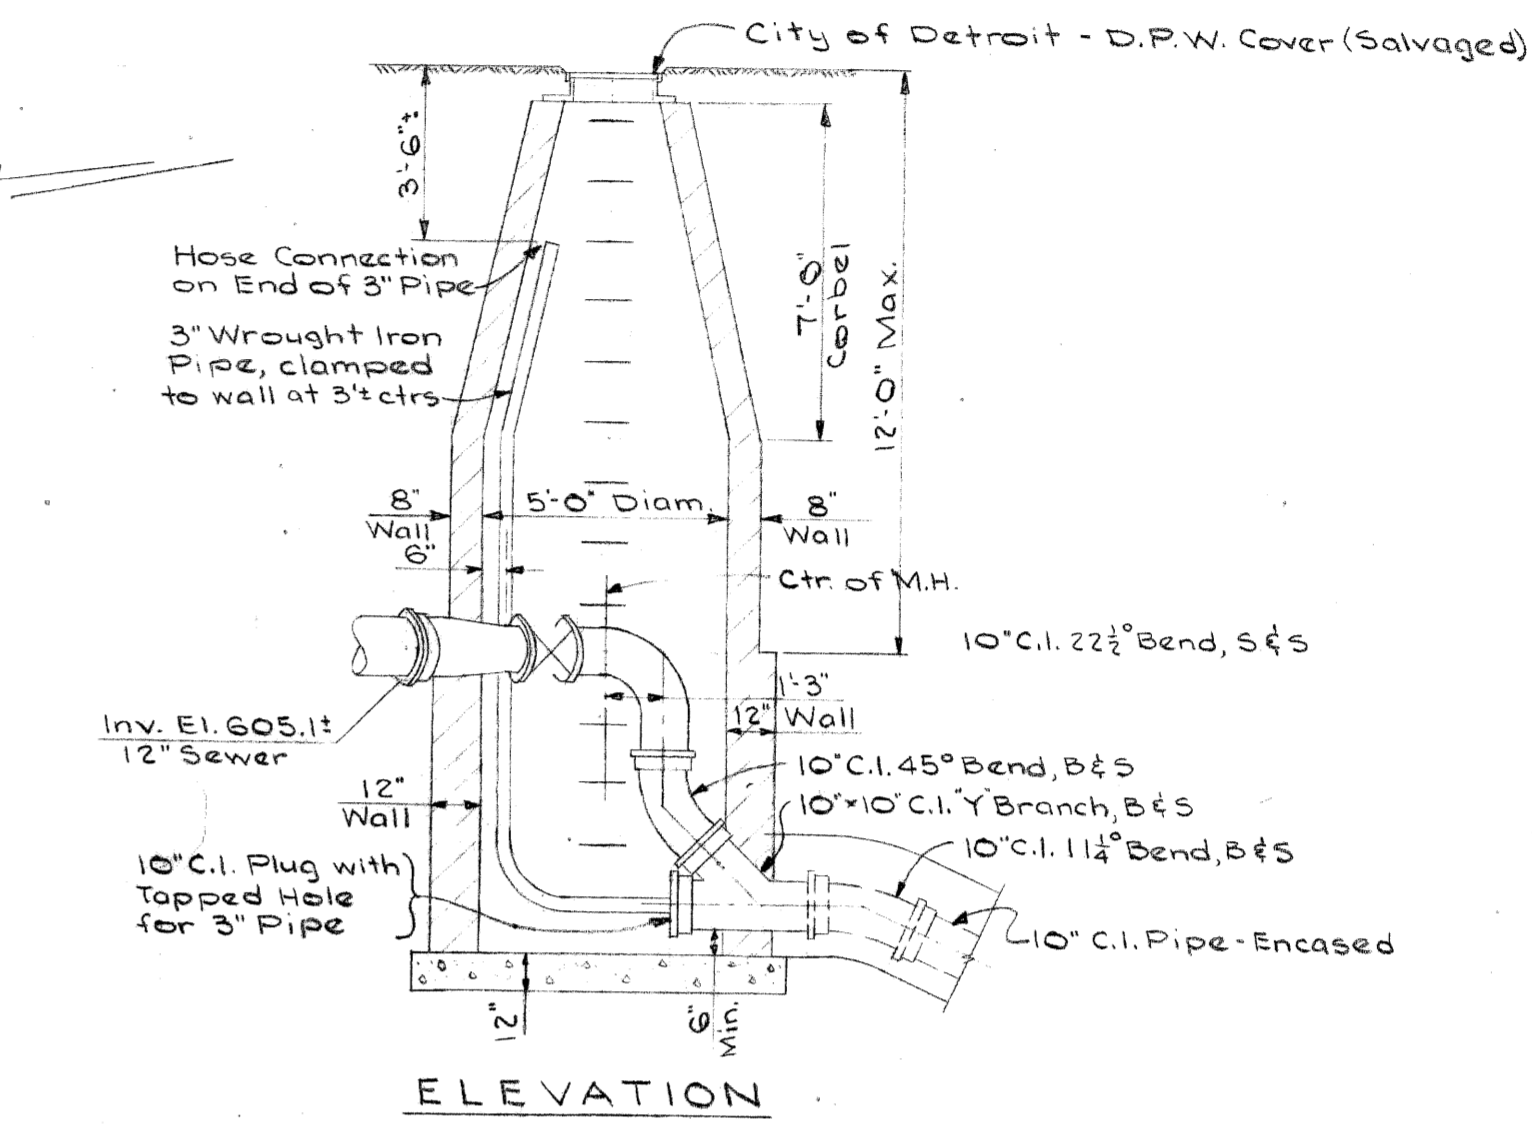 City of Detroit - D.P.W. Cover (Salvaged)
3'-6"±
Hose Connection
on End of 3" Pipe
3" Wrought Iron
Pipe, clamped
to wall at 3'± ctrs
7'-0"
Corbel
12'-0" Max.
8"
Wall
5'-0" Diam.
8"
Wall
6"
Ctr. of M.H.
10" C.I. 22½° Bend, S & S
1'-3"
12" Wall
Inv. El. 605.1±
12" Sewer
12"
Wall
10" C.I. 45° Bend, B & S
10"x10" C.I. "Y" Branch, B & S
10" C.I. 11¼° Bend, B & S
10" C.I. Plug with
Tapped Hole
for 3" Pipe
10" C.I. Pipe - Encased
12"
6"
Min.
ELEVATION